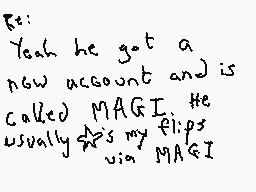 Re:
Yeah he got a
new account and is
called MAGI. He
usually ☆'s my flips
via MAGI